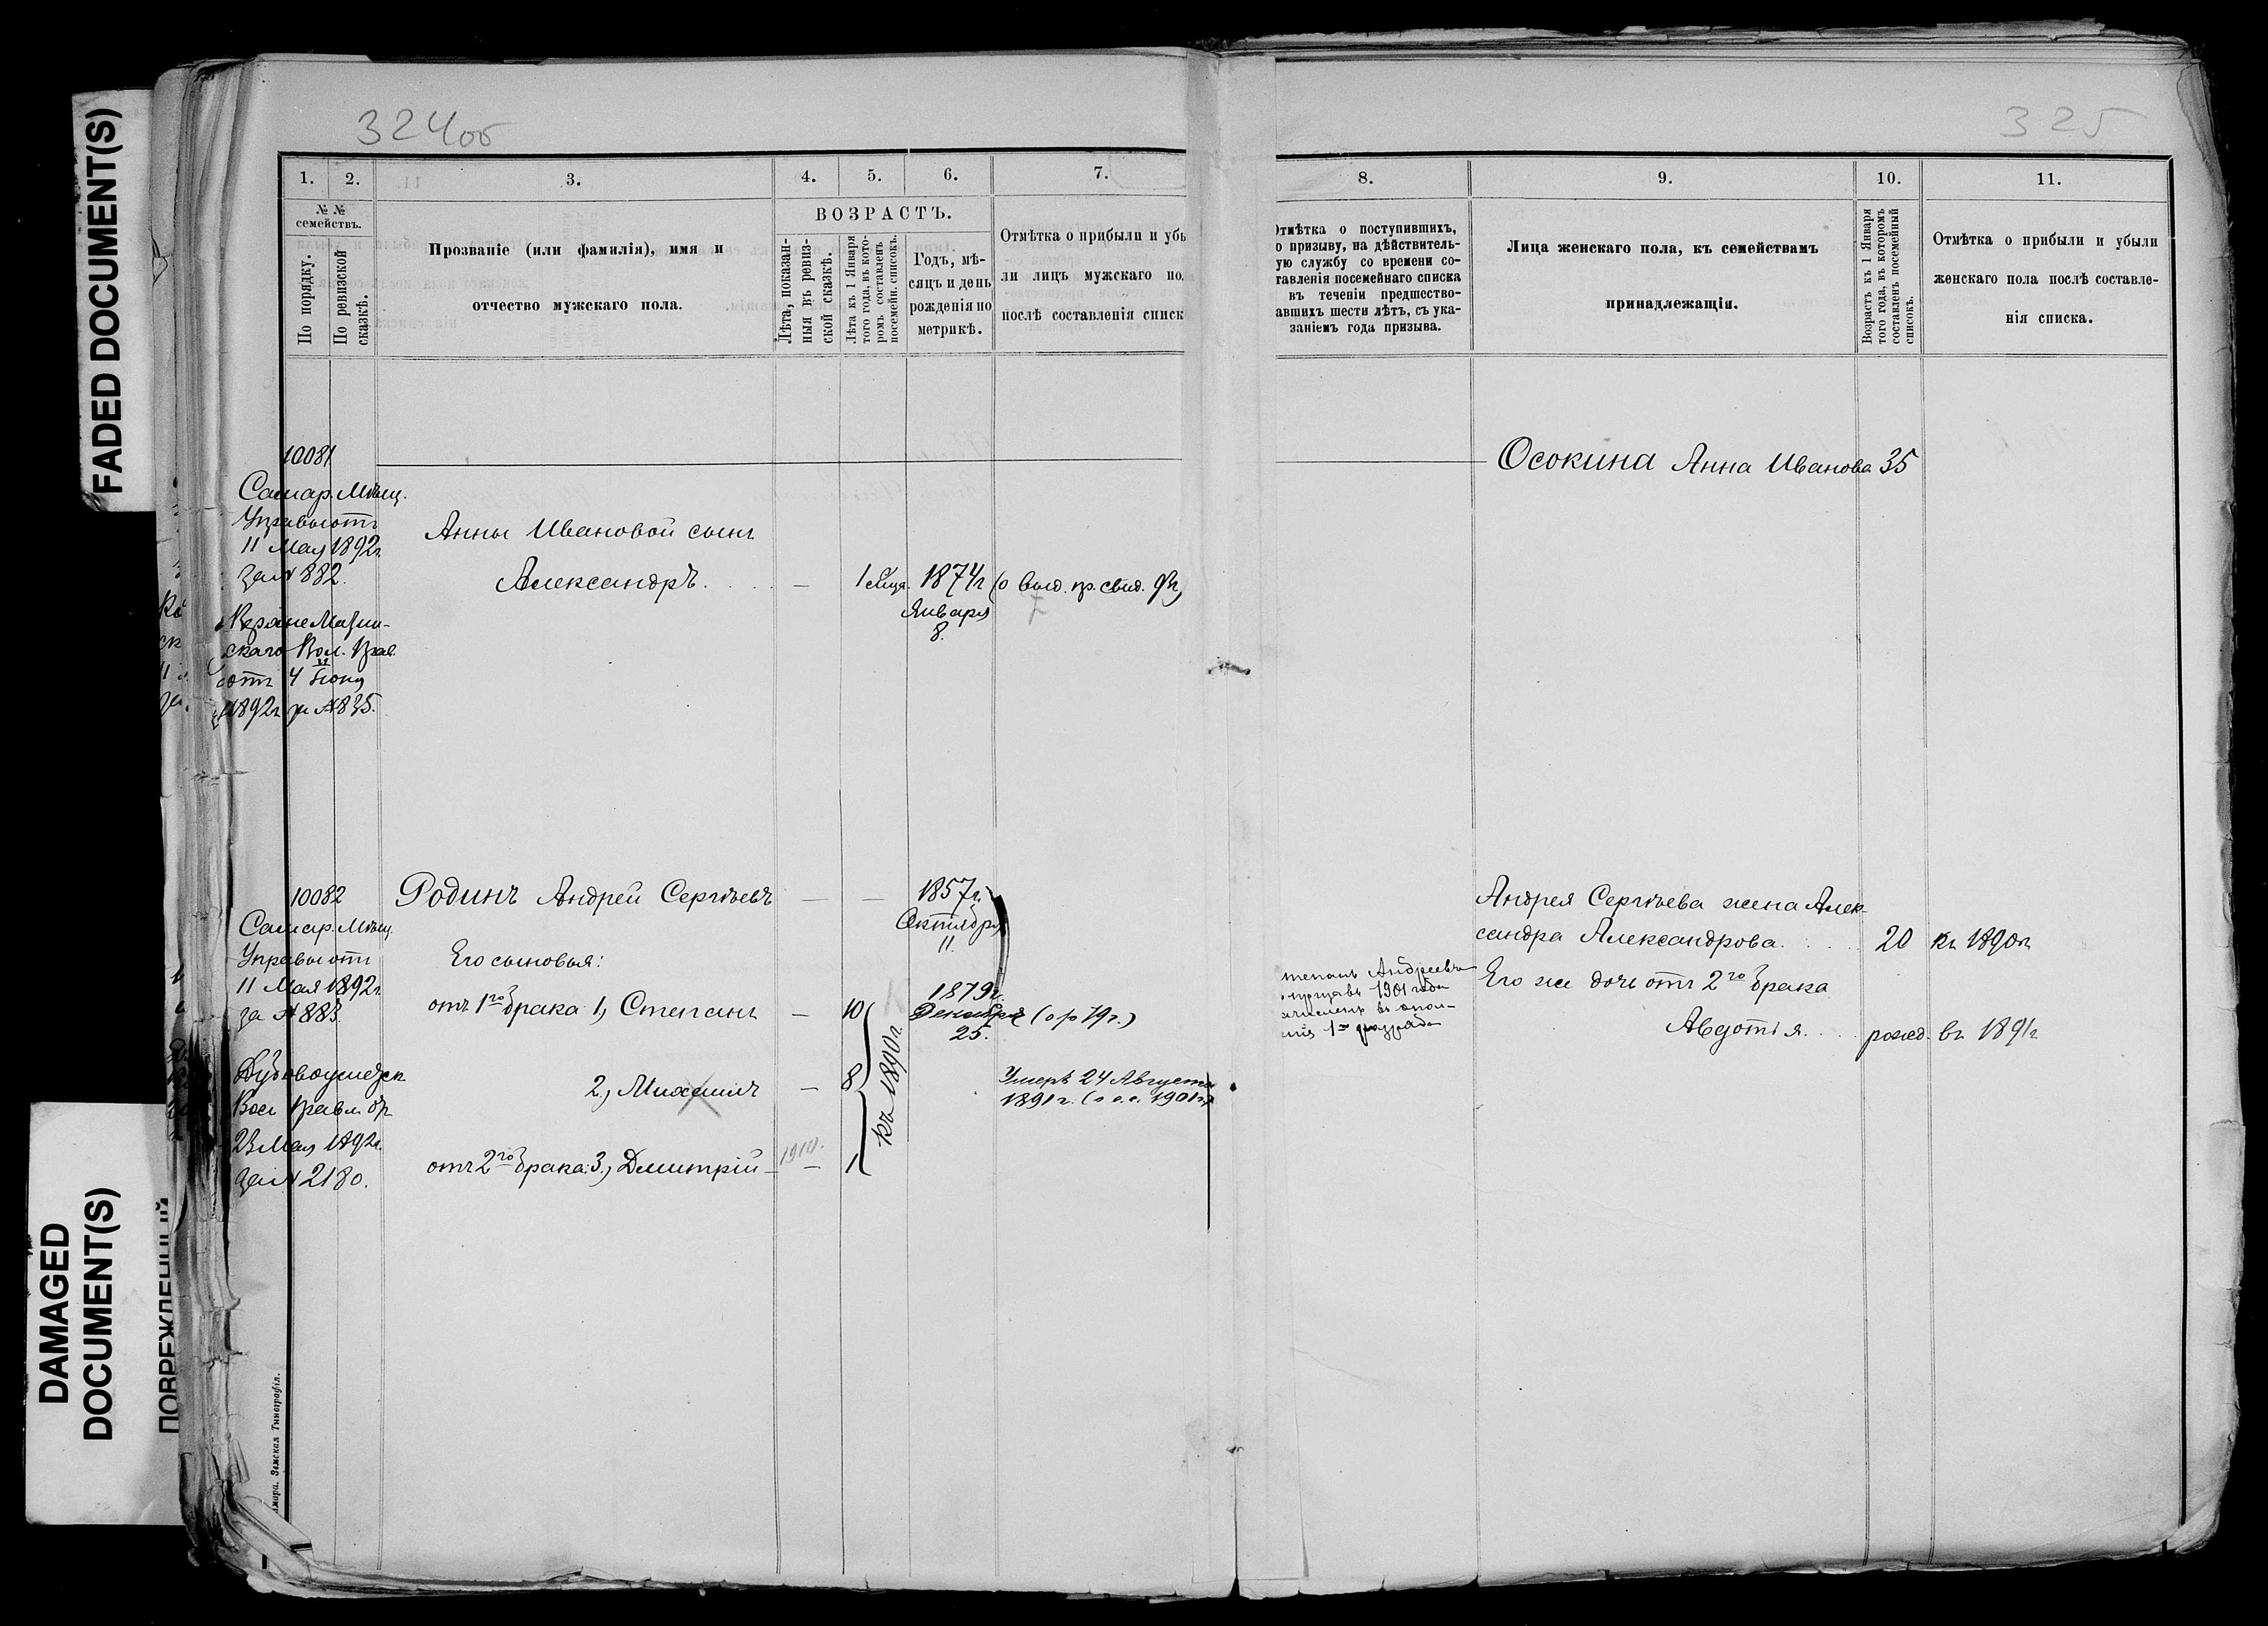 FADED DOCUMENT(S)
DAMAGED
DOCUMENT(S)
324об
325
1. 2. 3. 4. 5. 6. 7. 8. 9. 10. 11.
№ №
семействъ.
По порядку.
По ревизской
сказкѣ.
Прозваніе (или фамилія), имя и
отчество мужскаго пола.
ВОЗРАСТЪ.
Лѣта, показан-
ныя въ ревиз-
ской сказкѣ.
Лѣта къ 1 Января
того года, въ кото-
ромъ составленъ
посемейн. списокъ.
Годъ, мѣ-
сяцъ и день
рожденія по
метрикѣ.
Отмѣтка о прибыли и убы
ли лицъ мужскаго по
послѣ составленія списк
Отмѣтка о поступившихъ,
о призыву, на дѣйствитель-
ую службу со времени со-
тавленія посемейнаго списка
въ теченіи предшество-
авшихъ шести лѣтъ, съ ука-
заніемъ года призыва.
Лица женскаго пола, къ семействамъ
принадлежащія.
Возрастъ къ 1 Января
того года, въ которомъ
составленъ посемейный
списокъ.
Отмѣтка о прибыли и убыли
женскаго пола послѣ составле-
нія списка.
10081
Самар. Мѣщ.
Управы отъ
11 Мая 1892г.
за № 882.
Вол. Прав.
отъ 4 Іюня
1892г. за № 835.
Анны Ивановой сынъ
Александръ. — 1874г
Января
8.
Осокина Анна Иванова 35
10082
Самар. Мѣщ.
Управы отъ
11 Мая 1892г.
за № 883.
Дубовоуметск.
23 Мая 1892г.
за № 2180.
Родинъ Андрей Сергѣевъ — — 1857г.
Октября
11.
Его сыновья:
отъ 1го брака 1, Степанъ — 10
1879г.
Декабря
25.
2, Михаилъ — 8
Умеръ 24 Августа
1891г.
отъ 2го брака: 3, Дмитрій — 1
къ 1890г.
тепанъ Андреевъ
1901 года
1го разряда
Андрея Сергѣева жена Алек-
сандра Александрова. 20 къ 1890г
Его же дочь отъ 2го брака
Авдотія. рожд. въ 1891г
амара. Земская Типографія.